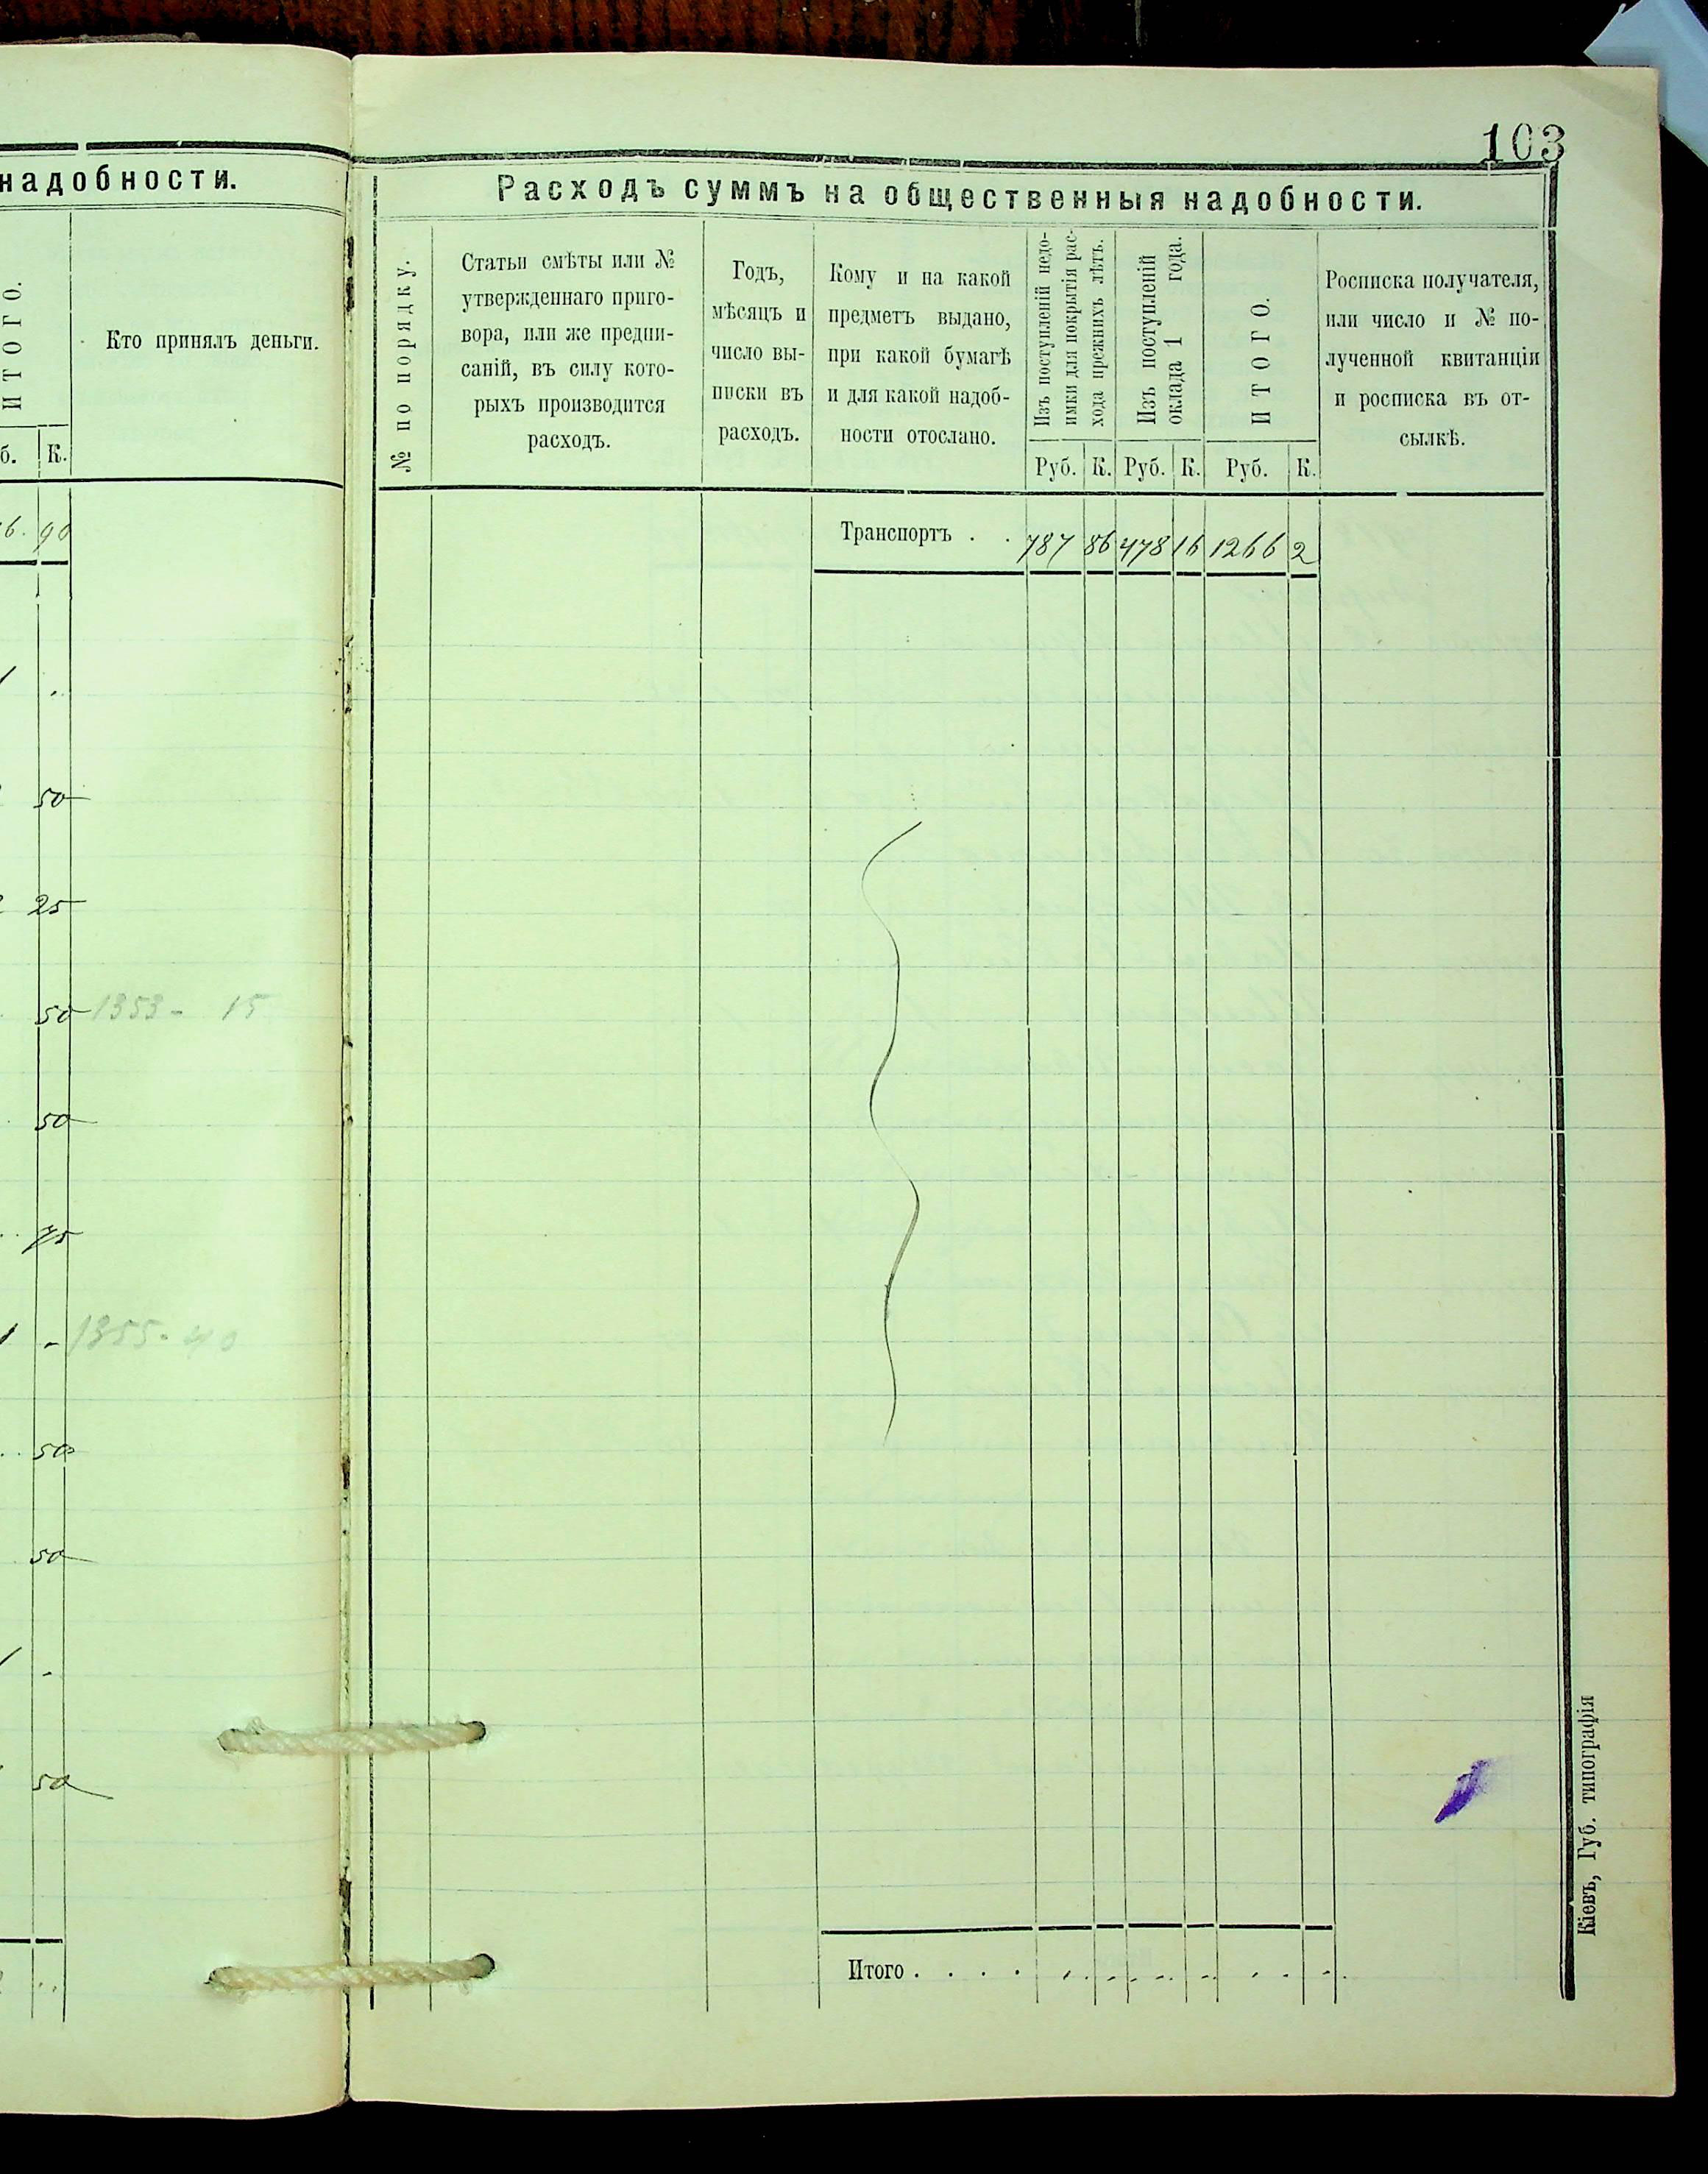 103
надобности.
ИТОГО.
Кто принялъ деньги.
б. К.
6. 90
50
25
50 1353 - 15
50
75
1 - 1355 - 40
50
50
50
Расходъ суммъ на общественныя надобности.
№ по порядку.
Статьи смѣты или №
утвержденнаго приго-
вора, или же предпи-
саній, въ силу кото-
рыхъ производится
расходъ.
Годъ,
мѣсяцъ и
число вы-
писки въ
расходъ.
Кому и на какой
предметъ выдано,
при какой бумагѣ
и для какой надоб-
ности отослано.
Изъ поступленій недо-
имки для покрытія рас-
хода прежнихъ лѣтъ.
Изъ поступленій
оклада 1 года.
ИТОГО.
Росписка получателя,
или число и № по-
лученной квитанціи
и росписка въ от-
сылкѣ.
Руб. К. Руб. К. Руб. К.
Транспортъ . . 787 86 478 16 1266 2
Итого . . . .
Кіевъ, Губ. типографія